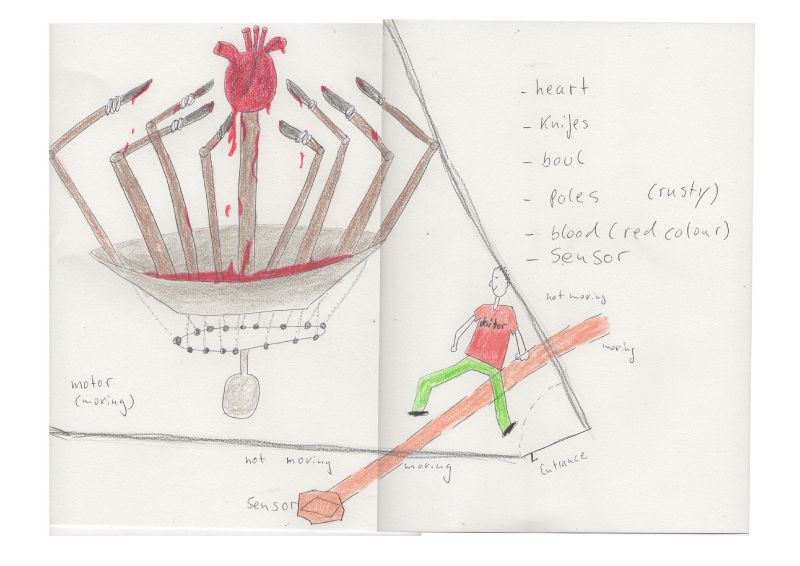 - heart
- Knifes
- boul
- Poles (rusty)
- blood (red colour)
- Sensor
not moving
moving
motor
(moving)
not moving
moving
Entrance
Sensor